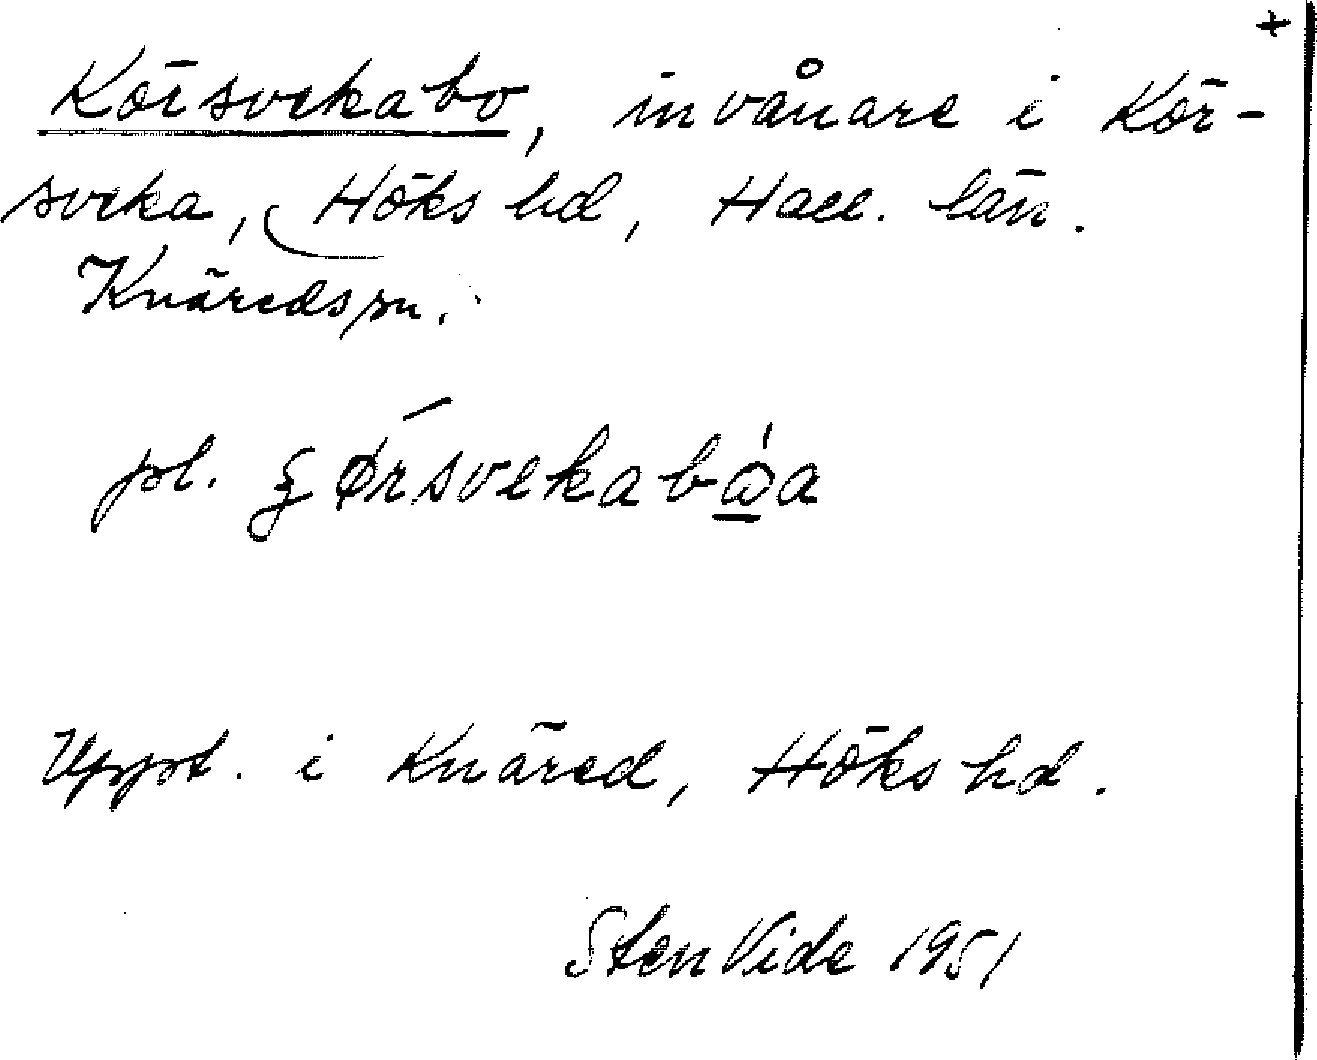 +
Körsvekabo, invånare i Kör-
sveka, Höks hd, Hall. län.
Knäreds sn.
pl.
Uppt. i Knäred, Höks hd.
Sten Vide 1951